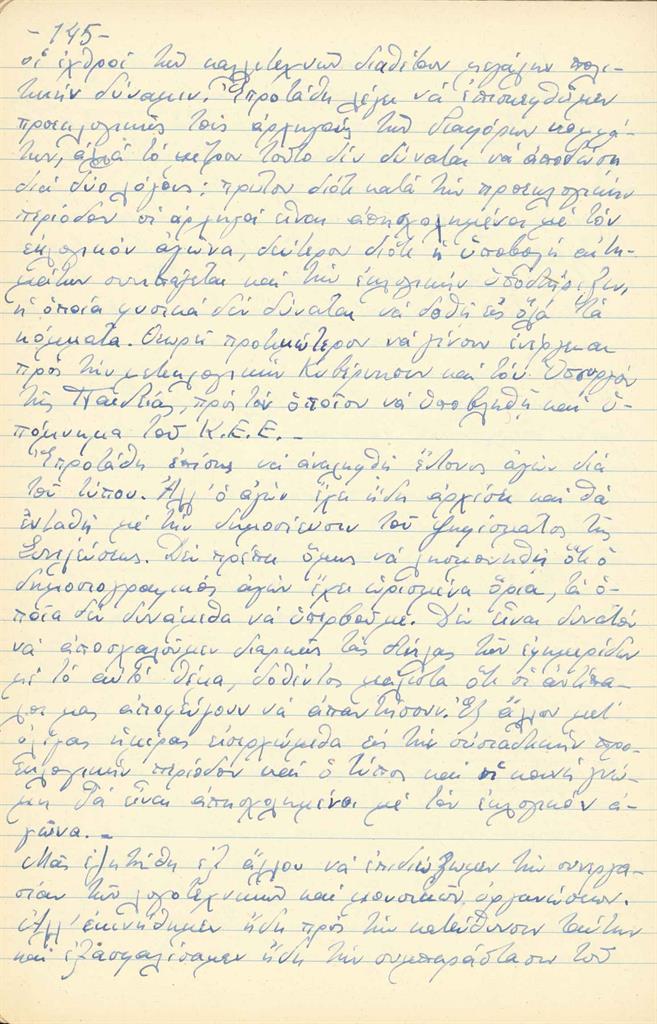 -145-
οἱ ἐχθροί τῶν καλλιτεχνῶν διαθέτουν μεγάλην πολι-
τικήν δύναμιν. Ἐπροτάθη λέγει νά ἐπισκεφθῶμεν
προεκλογικῶς τούς ἀρχηγούς τῶν διαφόρων κομμά-
των, ἀλλά τό μέτρον τοῦτο δέν δύναται νά ἀποδώσῃ
διά δύο λόγους: πρῶτον διότι κατά τήν προεκλογικήν
περίοδον οἱ ἀρχηγοί εἶναι ἀπησχολημένοι μέ τόν
ἐκλογικόν ἀγῶνα, δεύτερον διότι ἡ ὑποβολή αἰτη-
μάτων συνεπάγεται καί τήν ἐκλογικήν ὑποστήριξιν,
ἡ ὁποία φυσικά δέν δύναται νά δοθῇ εἰς ὅλα τά
κόμματα. Θεωρεῖ προτιμώτερον νά γίνουν ἐνέργειαι
πρός τήν μετεκλογικήν Κυβέρνησιν καί τόν Ὑπουργόν
τῆς Παιδείας, πρός τόν ὁποῖον νά ὑποβληθῇ καί ὑ-
πόμνημα τοῦ Κ.Ε.Ε. -
Ἐπροτάθη ἐπίσης νά ἀναληφθῇ ἔντονος ἀγών διά
τοῦ τύπου. Ἀλλ' ὁ ἀγών ἔχει ἤδη ἀρχίσει καί θά
ἐνταθῇ μέ τήν δημοσίευσιν τοῦ ψηφίσματος τῆς
Συνελεύσεως. Δέν πρέπει ὅμως νά λησμονηθῇ ὅτι ὁ
δημοσιογραφικός ἀγών ἔχει ὡρισμένα ὅρια, τά ὁ-
ποῖα δέν δυνάμεθα νά ὑπερβοῦμε. Δέν εἶναι δυνατόν
νά ἀπασχολοῦμεν διαρκῶς τάς στήλας τῶν ἐφημερίδων
μέ τό αὐτό θέμα, δοθέντος μάλιστα ὅτι οἱ ἀντίπα-
λοι μας ἀποφεύγουν νά ἀπαντήσουν. Ἐξ ἄλλου μετ'
ὀλίγας ἡμέρας εἰσερχώμεθα εἰς τήν οὐσιαστικήν προ-
εκλογικήν περίοδον καί ὁ τύπος καί ἡ κοινή γνώ-
μη θά εἶναι ἀπησχολημένοι μέ τόν ἐκλογικόν ἀ-
γῶνα. -
Μᾶς ἐζητήθη ἐξ ἄλλου νά ἐπιδιώξωμεν τήν συνεργα-
σίαν τῶν λογοτεχνικῶν καί μουσικῶν ὀργανώσεων.
Ἀλλ' ἐκινήθημεν ἤδη πρός τήν κατεύθυνσιν ταύτην
καί ἐξασφαλίσαμεν ἤδη τήν συμπαράστασιν τοῦ